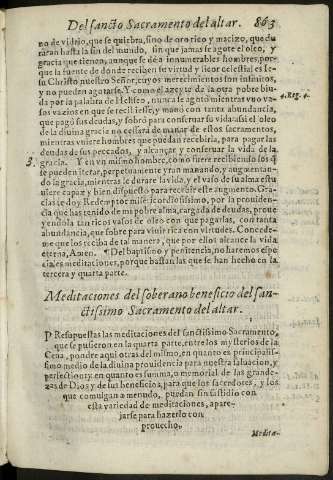 Del sancto Sacramento del altar. 863
no de vidrio, que se quiebra, sino de oro rico y macizo, que du
raràn hasta la fin del mundo, sin que jamas se agote el oleo, y
gracia que tienen, aunque se dè a innumerables hombres, por-
que la fuente de donde reciben se virtud y licor celestial es Ie-
su Christo nuestro Señor, cuyos merecimientos son infinitos,
y no pueden agotarse. Y como el azeyte de la otra pobre biu-
da por la palabra de Heliseo, nunca se agotò mientras vuo va-
sos vazios en que se recibiesse, y manò con tanta abundancia,
que pagò sus deudas, y sobrò para conseruar su vida: assi el oleo
de la diuina gracia no cessarà de manar de estos sacramentos,
mientras vuiere hombres que puedan recebirla, para pagar las
deudas de sus peccados, y alcançar y conseruar la vida de la
gracia. Y en vn mismo hombre, como fuere recibiendo los q̃
se pueden iterar, perpetuamente yrà manando, y augmentan-
do la gracia, mientras le durare la vida, y el vaso de su alma estu
uiere capaz y bien dispuesto para recebir este augmento. Gra-
cias te doy Redemptor misericordiosissimo, por la prouiden-
cia que has tenido de mi pobre alma, cargada de deudas, proue
yendola tan ricos vasos de oleo con que pagarlas, con tanta
abundancia, que sobre para viuir rica con virtudes. Concede-
me que los reciba de tal manera, que por ellos alcance la vida
eterna, Amen. ¶ Del baptismo y penitencia, no haremos espe
ciales meditaciones, porque bastan las que se han hecho en la
tercera y quarta parte.
4. Reg. 4.
3.
Meditaciones del soberano beneficio del san-
ctissimo Sacramento del altar.
PResupuestas las meditaciones del sanctissimo Sacramento,
que se pusieron en la quarta parte, entre los mysterios de la
Cena, pondrè aqui otras del mismo, en quanto es principalis-
simo medio de la diuina prouidencia para nuestra saluacion, y
perfection: y en quanto es summa, o memorial de las grande-
zas de Dios y de sus beneficios, para que los sacerdotes, y los
que comulgan a menudo, puedan sin fastidio con
esta variedad de meditaciones, apare-
jarse para hazerlo con
prouecho.
Medita-